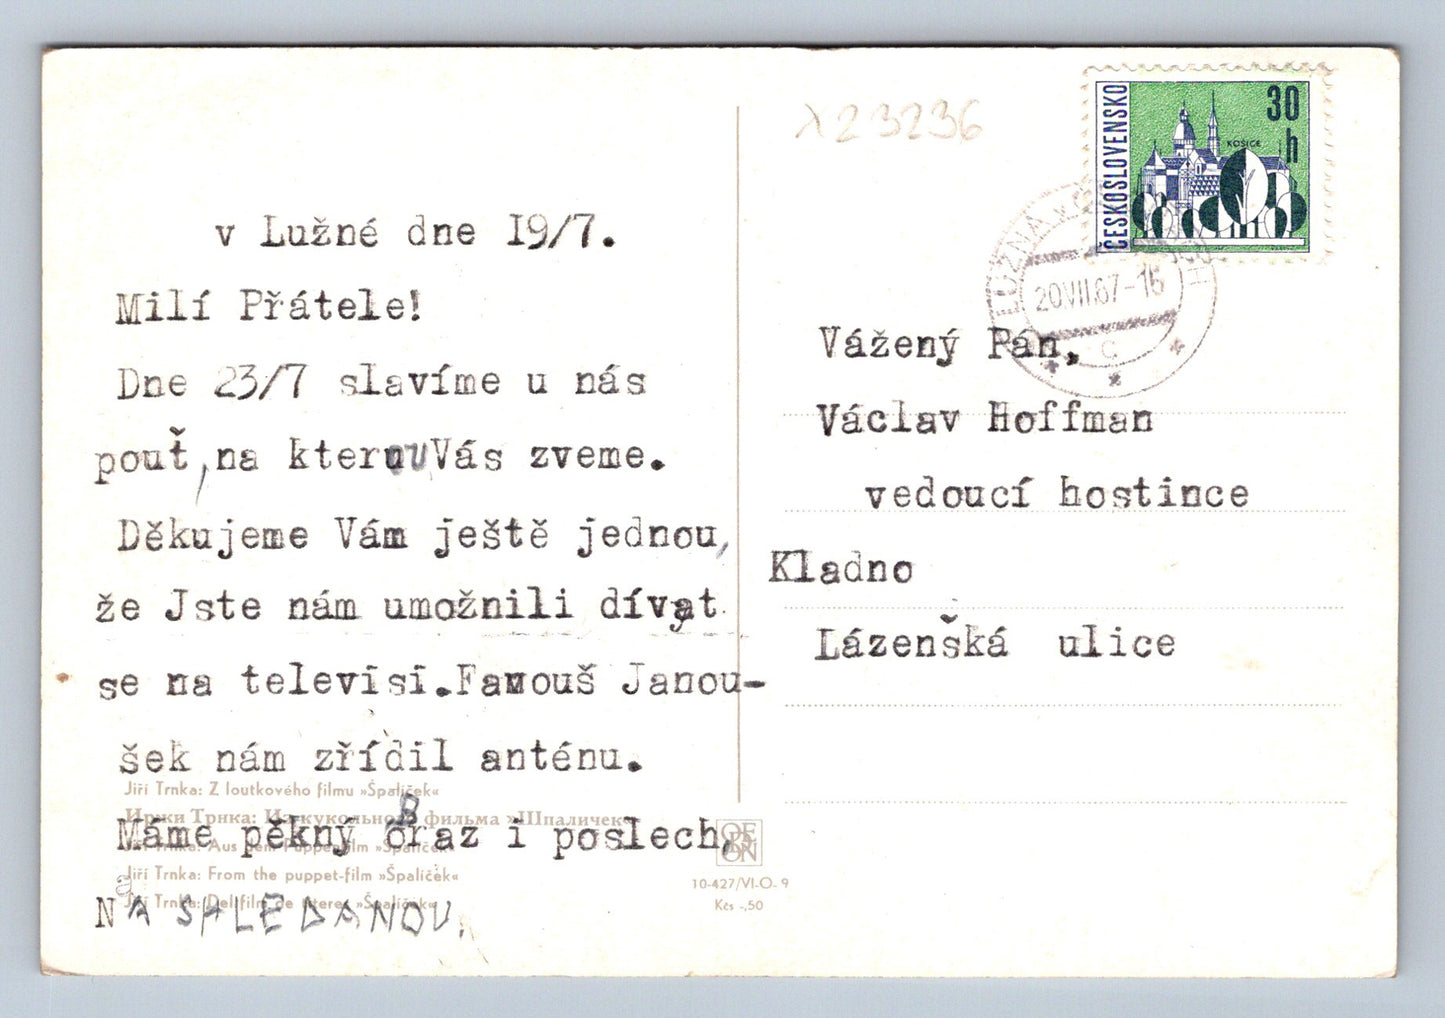 λ23236
ČESKOSLOVENSKO
30
h
KOŠICE
LUŽNÁ
20.VII.67-16
C
v Lužné dne 19/7.
Milí Přátele!
Dne 23/7 slavíme u nás
pouť, na kterou Vás zveme.
Děkujeme Vám ještě jednou,
že Jste nám umožnili dívat
se na televisi. Famouš Janou-
šek nám zřídil anténu.
Máme pěkný obraz i poslech,
a
NA SHLEDANOU.
Vážený Pán,
Václav Hoffman
vedoucí hostince
Kladno
Lázenšká ulice
Jiří Trnka: Z loutkového filmu »Špalíček«
Иржи Трнка: Из кукольного фильма »Шпаличек«
Jiří Trnka: Aus dem Puppenfilm »Špalíček«
Jiří Trnka: From the puppet-film »Špalíček«
Jiří Trnka: Del film de títeres »Špalíček«
ORBON
10-427/VI-O-9
Kčs -,50